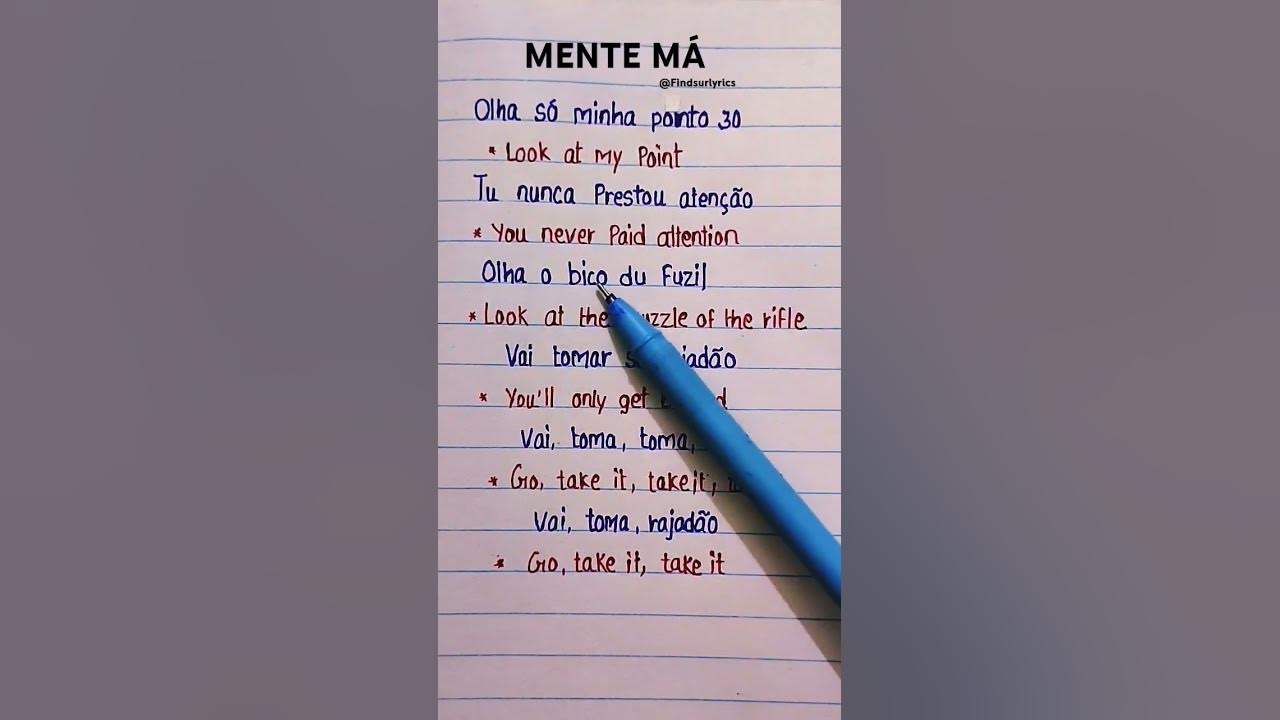 MENTE MÁ
@Findsurlyrics
Olha só minha ponto 30
* Look at my Point
Tu nunca Prestou atenção
* You never Paid attention
Olha o bico du Fuzil
* Look at the uzzle of the rifle
Vai tomar jadão
* You'll only get
Vai, toma, toma,
* Go, take it, take it,
Vai, toma, rajadão
* Go, take it, take it